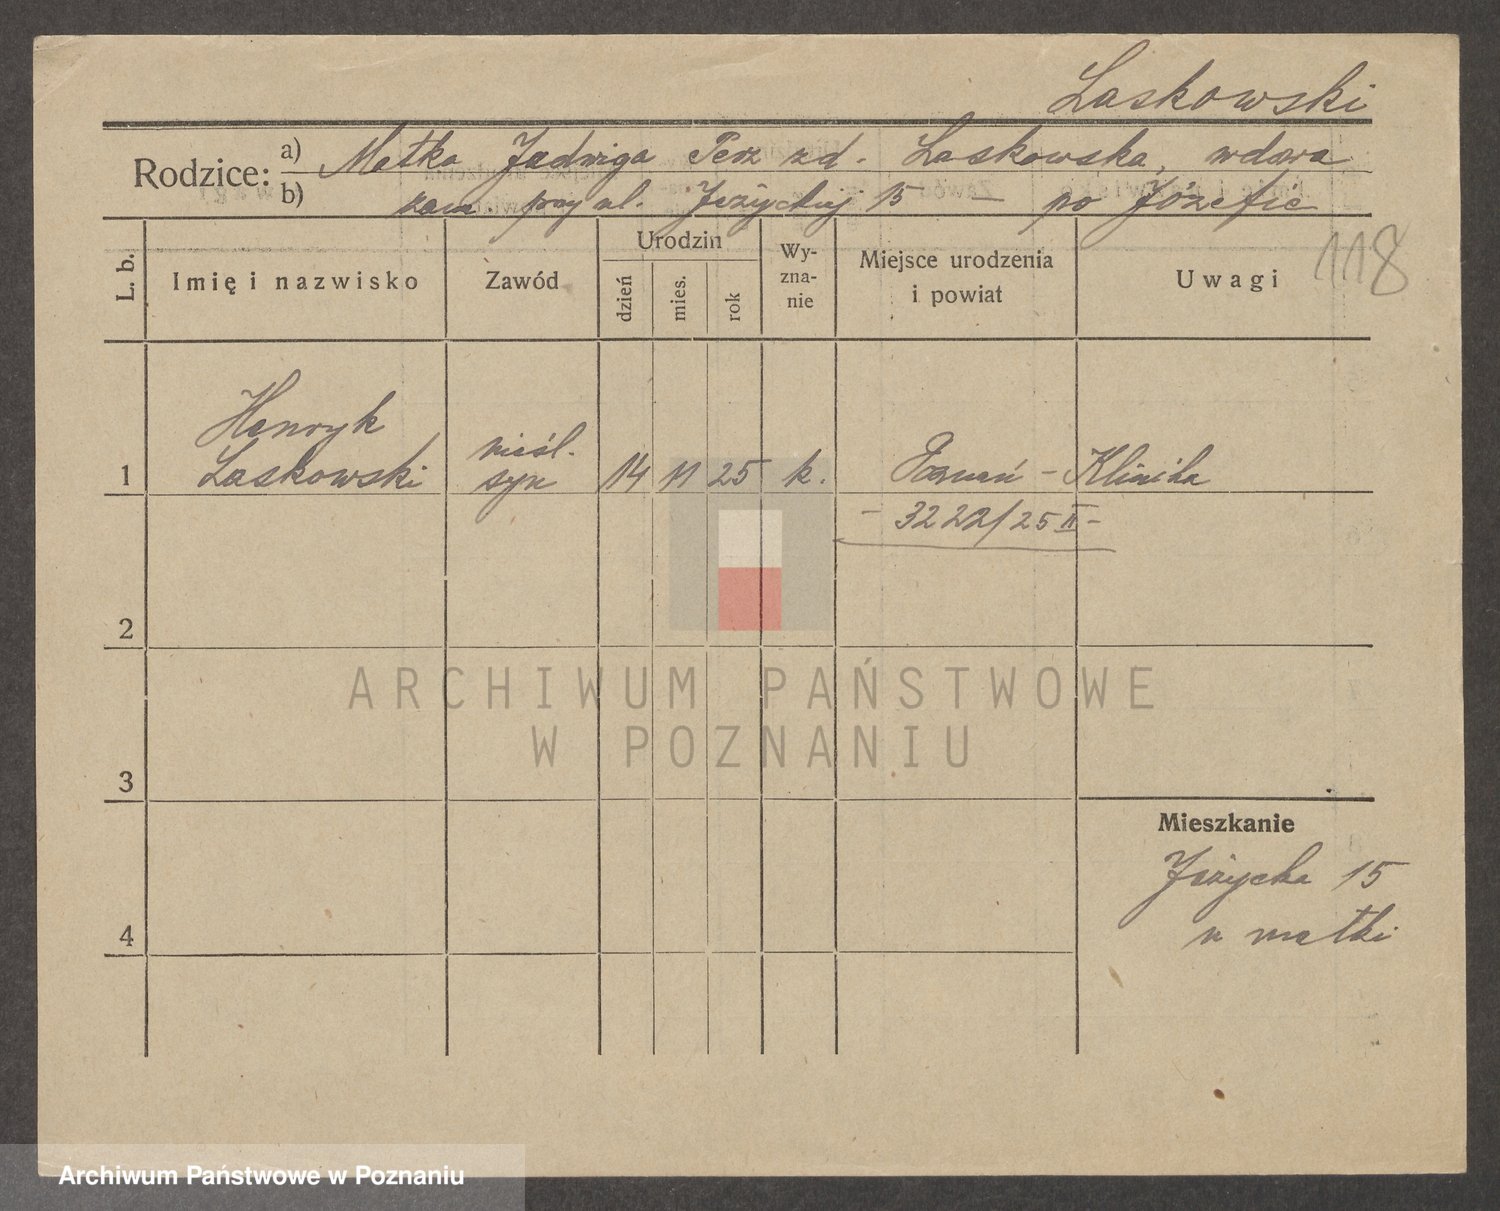 Laskowski
Rodzice: a) Matka Jadwiga Perz zd. Laskowska, wdowa
b) zam przy ul. Jeżyckiej 15 — po Józefie
118
L. b.
Imię i nazwisko
Zawód
Urodzin
dzień
mies.
rok
Wy-
zna-
nie
Miejsce urodzenia
i powiat
Uwagi
Henryk
1 Laskowski
nieśl.
syn
14 11 25 k.
Poznań - Klinika
- 3222/25 II -
2
3
4
Mieszkanie
Jeżycka 15
u matki
ARCHIWUM PAŃSTWOWE
W POZNANIU
Archiwum Państwowe w Poznaniu